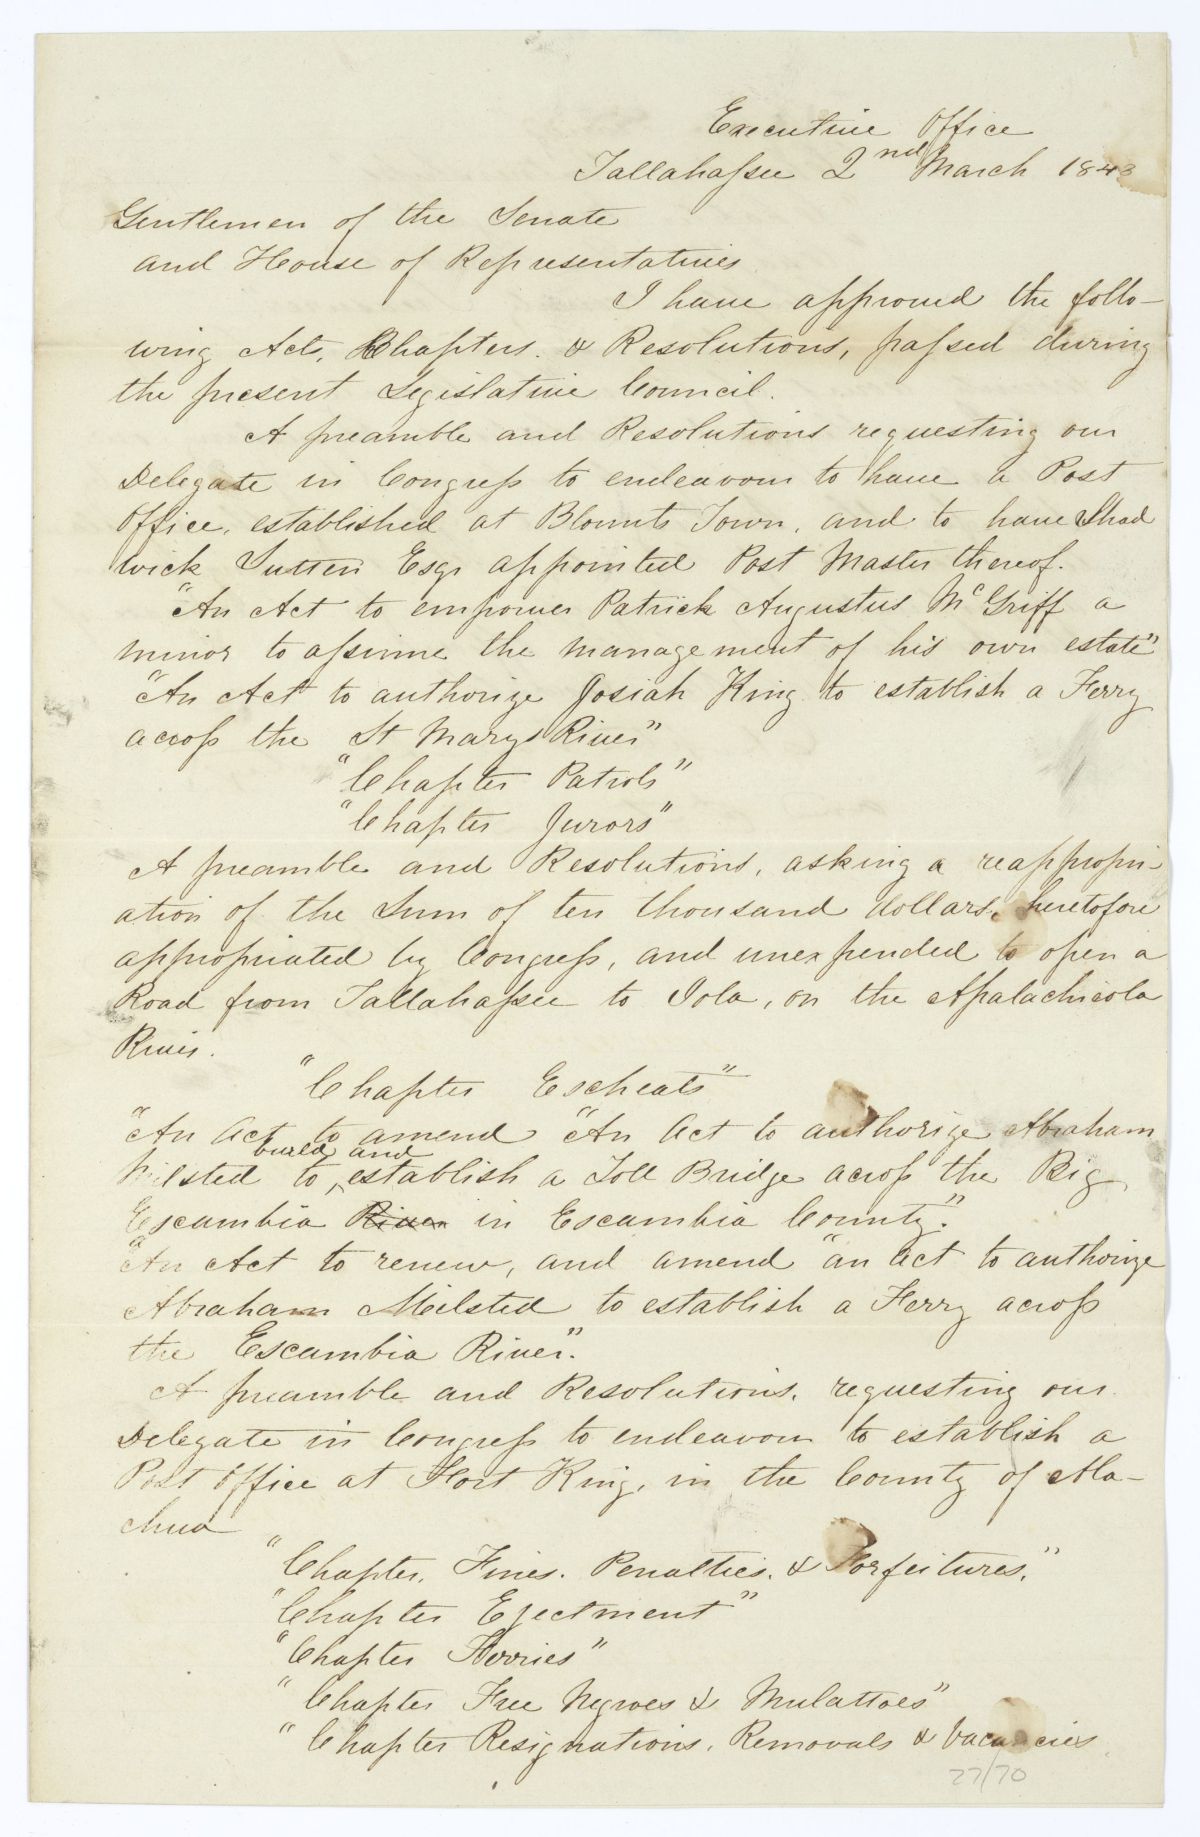 Executive Office
Tallahassee 2nd March 1843
Gentlemen of the Senate
and House of Representatives
I have approved the follo-
wing Acts, Chapters. & Resolutions, passed during
the present Legislative Council.
A preamble and Resolutions requesting our
Delegate in Congress to endeavour to have a Post
Office, established at Blounts Town, and to have Shad
wick Sutten Esqr appointed Post Master thereof.
"An Act to empower Patrick Augustus McGriff a
minor to assume the management of his own estate"
"An Act to authorize Josiah King to establish a Ferry
across the St Marys River"
"Chapter Patrols"
"Chapter Jurors"
A preamble and Resolutions, asking a reappropri-
ation of the Sum of ten thousand dollars, heretofore
appropriated by Congress, and unexpended to open a
Road from Tallahassee to Iola, on the Apalachicola
River.
"Chapter Escheats"
"An Act to amend "An Act to authorize Abraham
build and
Milsted to ‸ establish a Toll Bridge across the Big
Escambia River in Escambia County."
"An Act to renew, and amend "an act to authorize
Abraham Milsted to establish a Ferry across
the Escambia River".
A preamble and Resolutions, requesting our
Delegate in Congress to endeavour to establish a
Post Office at Fort King, in the County of Ala-
chua
"Chapter, Fines. Penalties. & Forfeitures."
"Chapter Ejectment"
"Chapter Ferries"
"Chapter Free Negroes & Mulattoes"
"Chapter Resignations, Removals & Vacancies
27/70